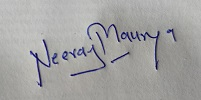 Neeraj Maurya